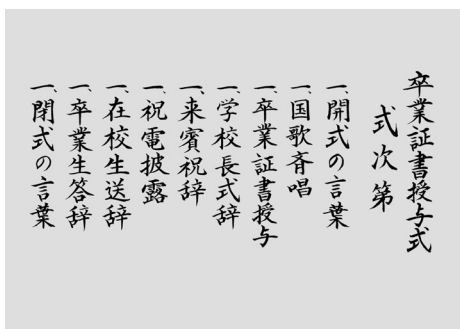 卒業証書授与式
式次第
一、開式の言葉
一、国歌斉唱
一、卒業証書授与
一、学校長式辞
一、来賓祝辞
一、祝電披露
一、在校生送辞
一、卒業生答辞
一、閉式の言葉